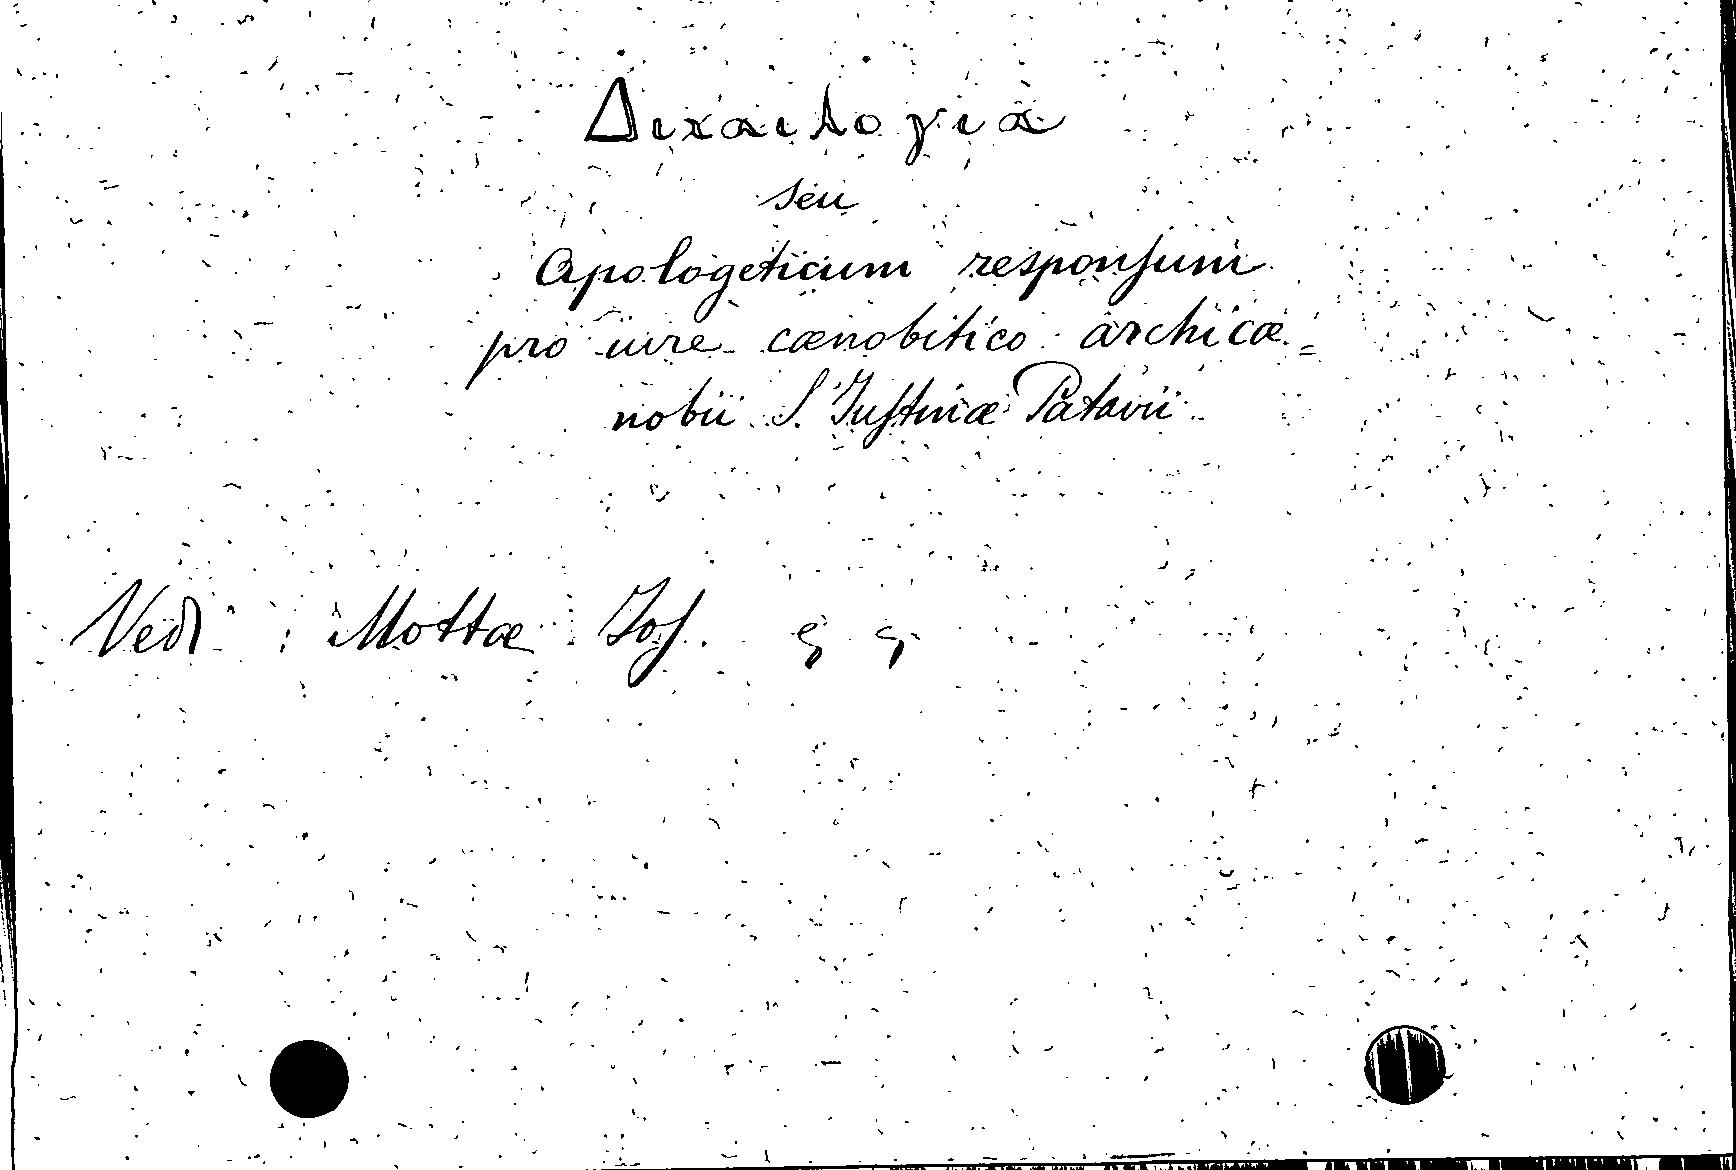 Δικαιλογια
seu
Apologeticum responsum
pro iure cœnobitico archicœ=
nobii S. Justinæ Patavii
Vedi : Mottæ Jos.